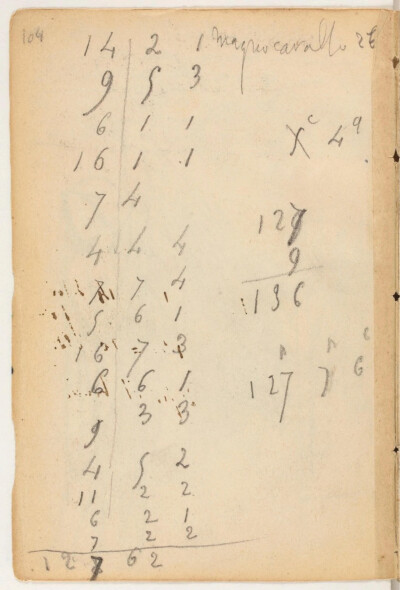 104
14 2 1
9 5 3
6 1 1
16 1 1
7 4
4 4 4
7 4
5 6 1
16 7 3
6 6 1
3 3
9
4 5 2
11 2 2
6 2 1
7 2 2
1 2 7 6 2
X c 4 q
127
9
136
127 n 7 n 6 c